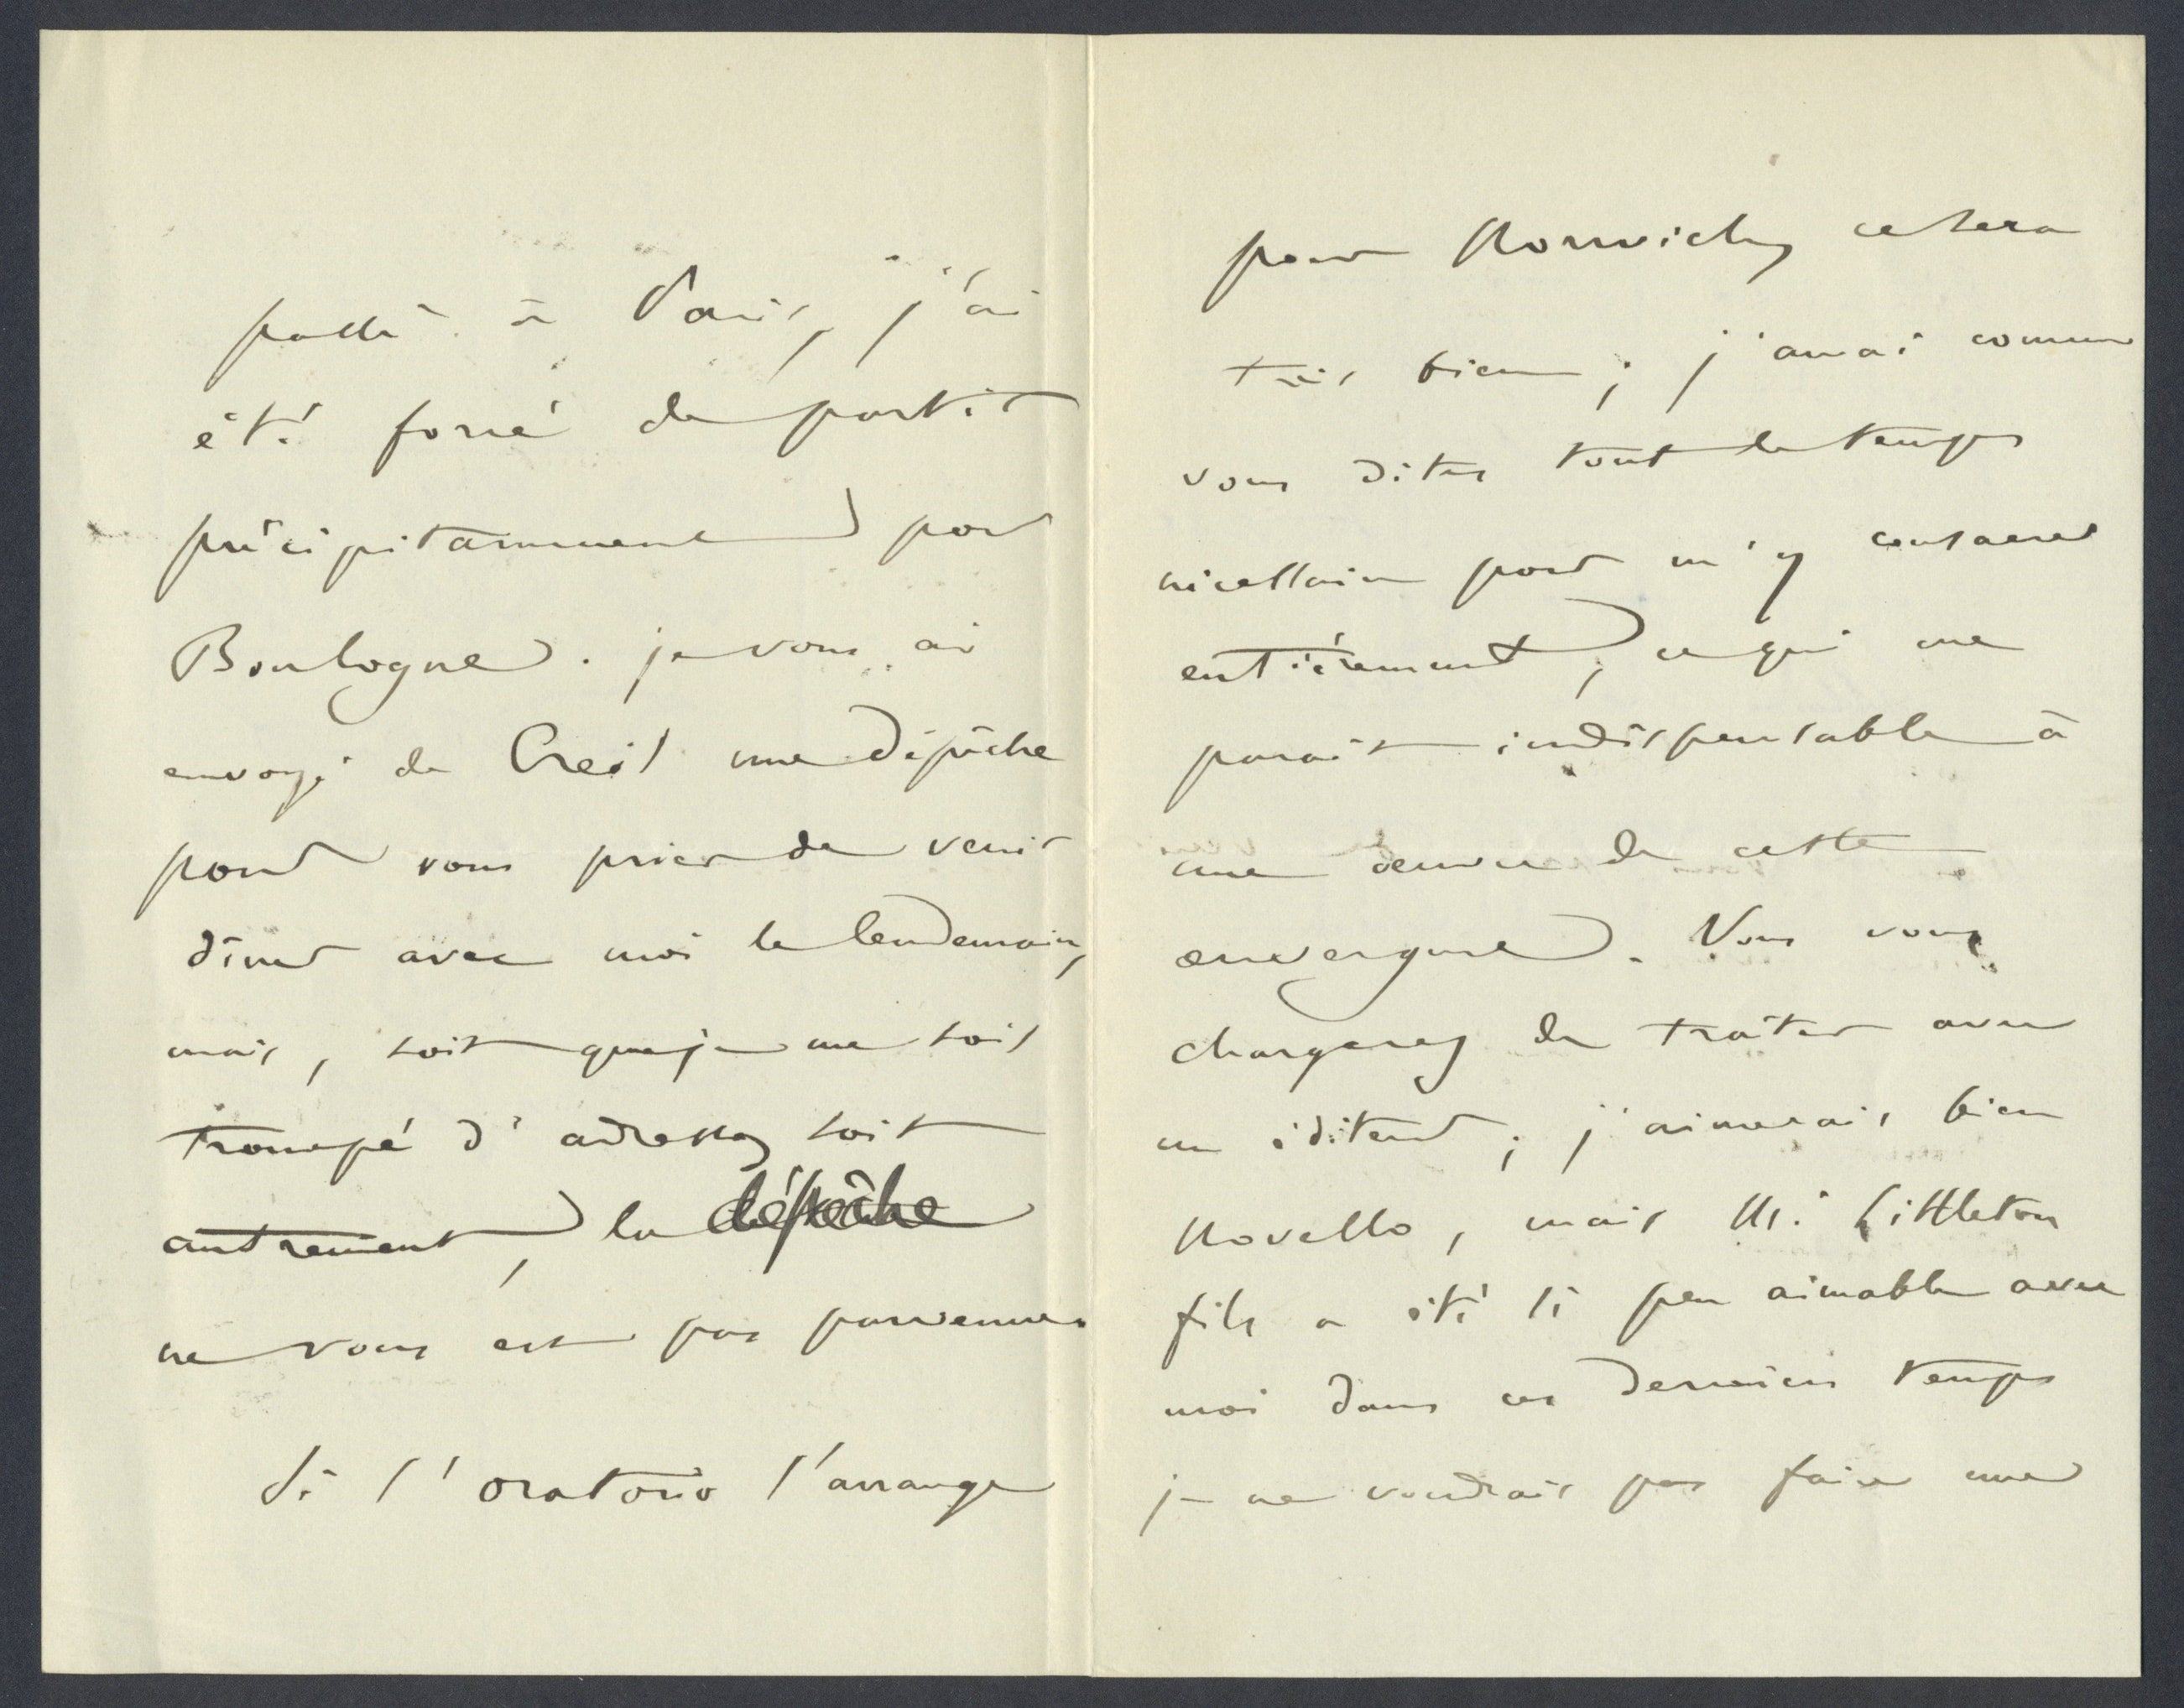 passé à Paris, j'ai
été forcé de partir
précipitamment pour
Boulogne. je vous ai
envoyé de Creil une dépêche
pour vous prier de venir
dîner avec moi le lendemain,
mais, soit que je me sois
trompé d'adresse, soit
autrement, la dépêche
ne vous est pas parvenue.
Si l'oratorio s'arrange
pour Norwich, ce sera
très bien; j'aurai comme
vous dites tout le temps
nécessaire pour m'y consacrer
entièrement, ce qui me
paraît indispensable à
une œuvre de cette
envergure. Vous vous
chargerez de traiter avec
un éditeur; j'aimerais bien
Novello, mais Mr. Littleton
fils a été si peu aimable avec
moi dans ces derniers temps
je ne voudrais pas faire une